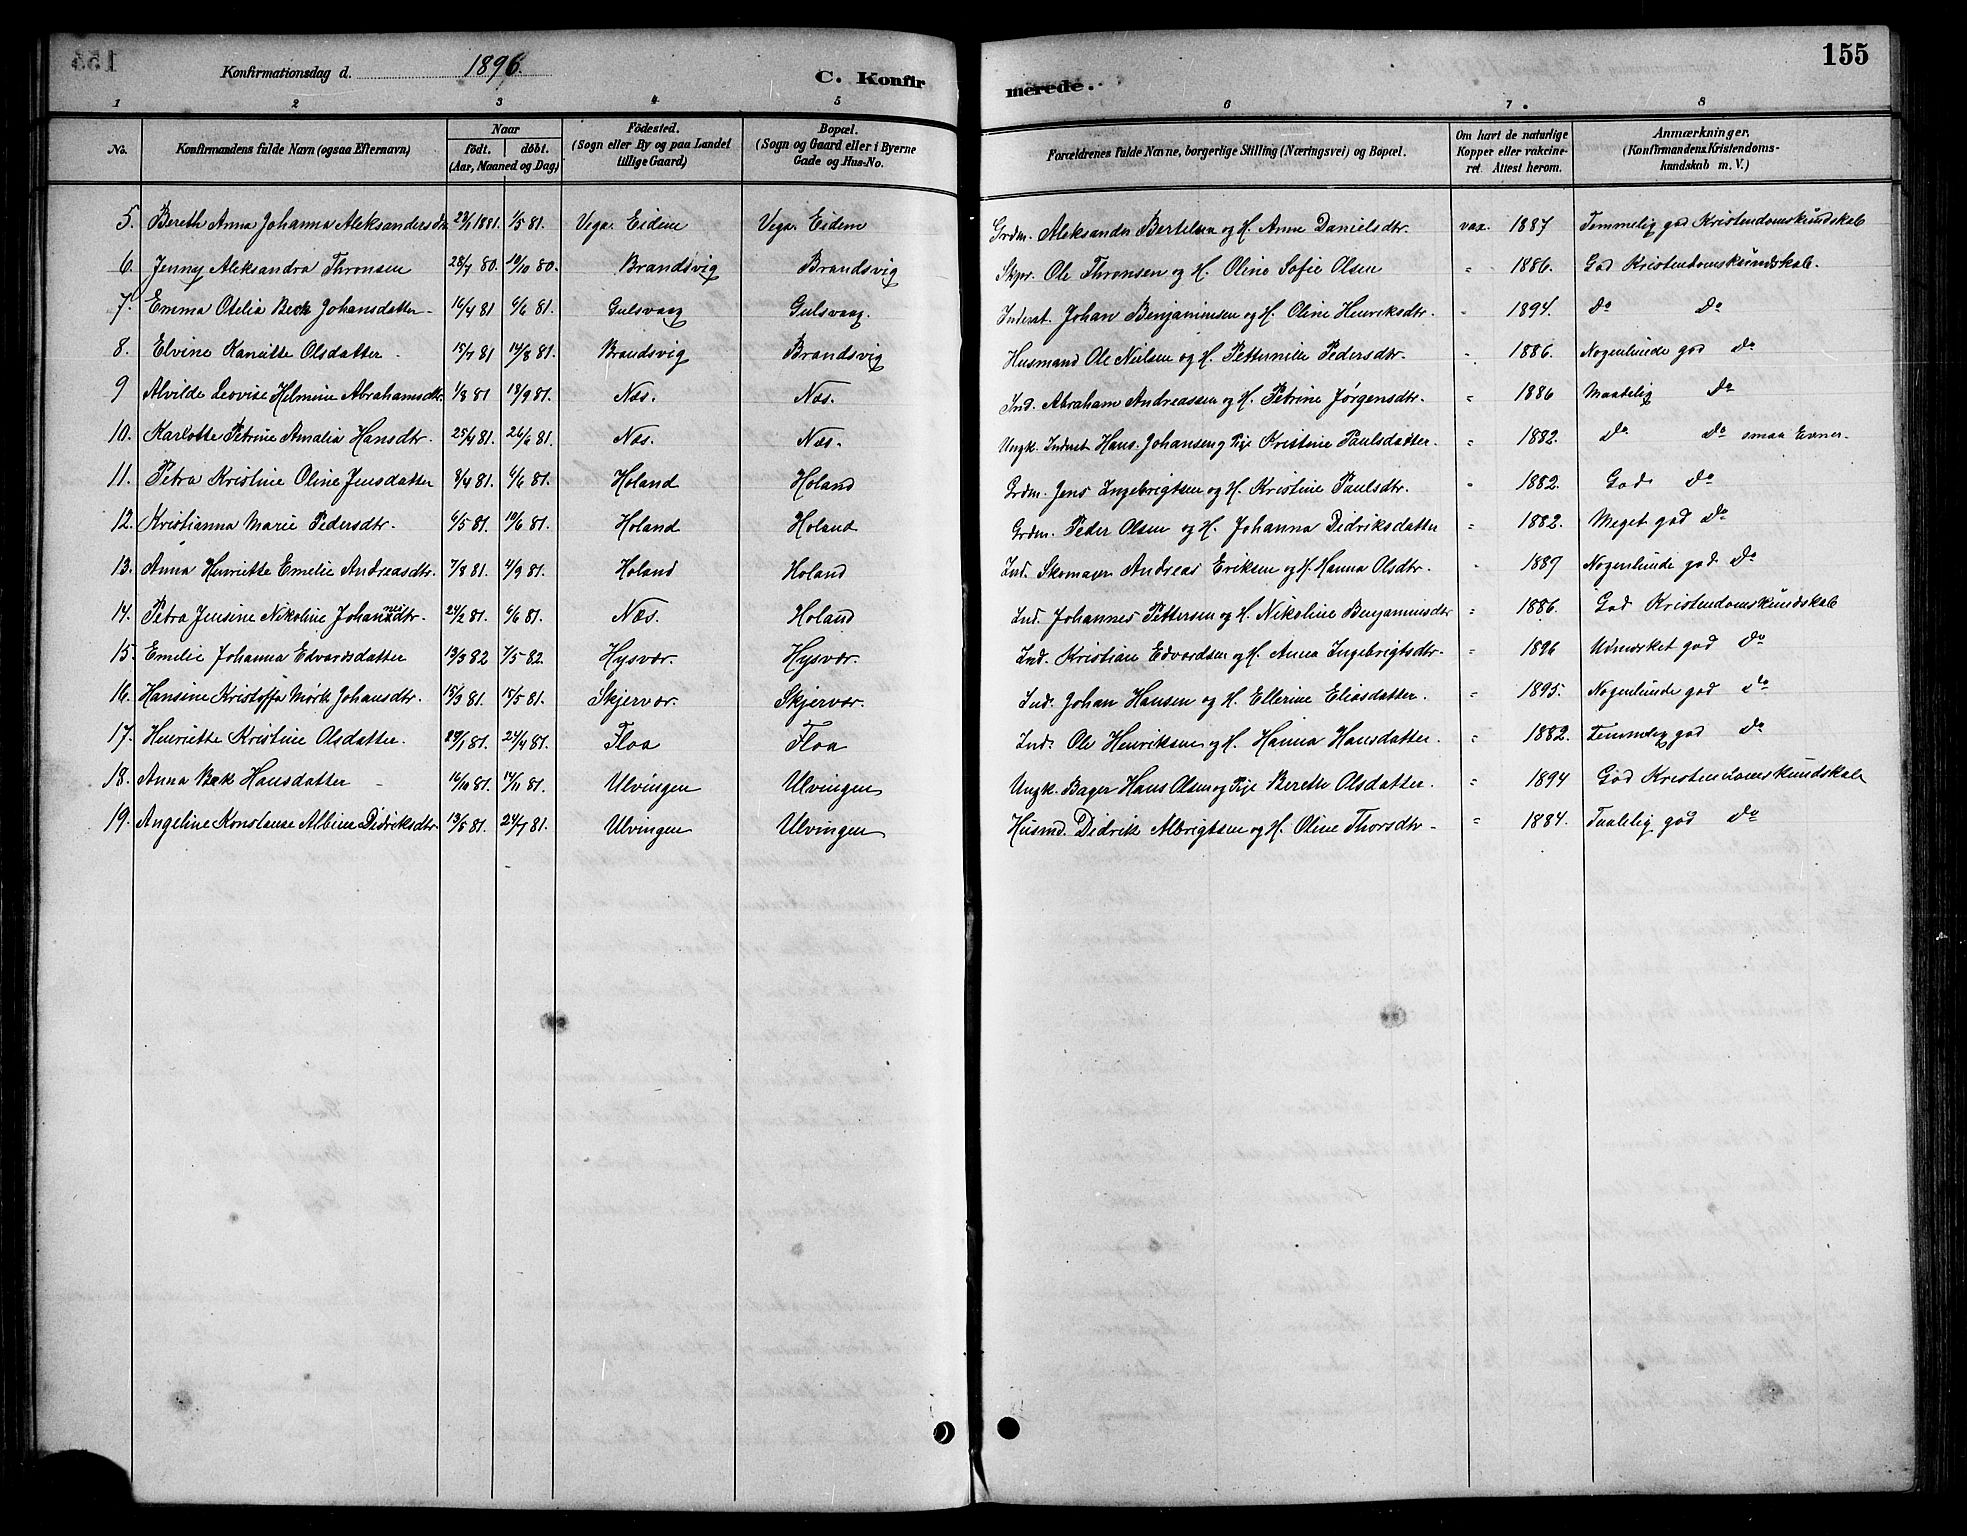 155
Konfirmationsdag d. 1896. C. Konfirmerede.
1 2 3 4 5 6 7. 8
No. Konfirmandens fulde Navn (ogsaa Efternavn) Naar født. døbt. (Aar, Maaned og Dag) Fødested. (Sogn eller By og paa Landet tillige Gaard) Bopæl. (Sogn og Gaard eller i Byerne Gade og Hus-No. Forældrenes fulde Navne, borgerlige Stilling (Næringsvei) og Bopæl. Om havt de naturlige Kopper eller vakcineret. Attest herom. Anmærkninger. (Konfirmandens Kristendomskundskab m. V.)
5. Bereth Anna Johanna Aleksandersdtr 1881. 1/5 81. Vega. Eidem Vega. Eidem Grdm. Aleksander Bertelsen og H. Anne Danielsdtr. vax. 1887 Temmelig god Kristendomskundskab
6. Jenny Aleksandra Thronsen 28/7 80. 10/10 80. Brandsvig Brandsvig Skpr. Ole Thronsen og H. Oline Sofie Olsen " 1886. God Kristendomskundskab.
7. Emma Otelia Beck Johansdatter 16/4 81 6/6 81. Gulsvaag Gulsvaag. Inderst. Johan Benjaminsen og H. Oline Henriksdtr. " 1894. Do Do
8. Elvine Kanutte Olsdatter 15/7 81 14/8 81. Brandsvig Brandsvig Husmand Ole Nielsen og H. Petternille Pedersdtr. " 1886. Nogenlunde god Do
9 Alvilde Lovise Helmine Abrahamsdtr. 1/8 81 18/9 81. Næs. Næs. Ind. Abraham Andreassen og H. Petrine Jørgensdtr. " 1886 Maadelig Do
10. Karlotte Petrine Amalia Hansdtr. 25/4 81. 26/6 81. Næs. Næs. Ungk. Inderst Hans Johansen og Pige Kristine Paulsdatter. " 1882. Do Do smaa Evner.
11. Petra Kristine Oline Jensdatter 9/4 81. 6/6 81. Holand Holand Grdm. Jens Ingebrigtsen og H. Kristine Paulsdtr. " 1882. God Do
12. Kristianna Marie Pedersdtr. 6/5 81. 10/6 81. Holand Holand Grdm. Peder Olsen og H. Johanna Didriksdatter " 1882. Meget god Do
13. Anna Henriette Emelie Andreasdtr. 7/8 81. 4/9 81. Holand Holand Ind. Skomager Andreas Eriksen og H. Hanna Olsdtr. " 1889 Nogenlunde god. Do
14. Petra Jensine Nikoline Johannesdtr. 24/2 81. 6/6 81. Næs. Holand Ind. Johannes Pettersen og H. Nikoline Benjaminsdtr " 1886. God Kristendomskundskab
15. Emelie Johanna Edvardsdatter 13/3 82 7/5 82. Hysvær. Hysvær. Ind. Kristian Edvardsen og H. Anna Ingebrigtsdtr. " 1896 Udmærket god Do
16. Hansine Kristoffa Mørk Johansdtr. 15/3 81. 15/5 81. Skjervær. Skjervær. Ind. Johan Hansen og H. Ellerine Eliasdatter. " 1895. Nogenlunde god Do
17. Henriette Kristine Olsdatter. 81. 24/4 81. Floa Floa Ind. Ole Henriksen og H. Hanna Hansdatter. " 1882. Temmelig god Do
18. Anna Bek Hansdatter 16/10 81. 14/11 81. Ulvingen Ulvingen Ungk. Bager Hans Olsen og Pige Bereth Olsdatter. " 1894 God Kristendomskundskab
19. Angeline Konstanse Albine Didriksdtr 13/5 81. 24/7 81. Ulvingen Ulvingen Husmd. Didrik Albrigtsen og H. Oline Thorsdtr " 1884. Taalelig god Do